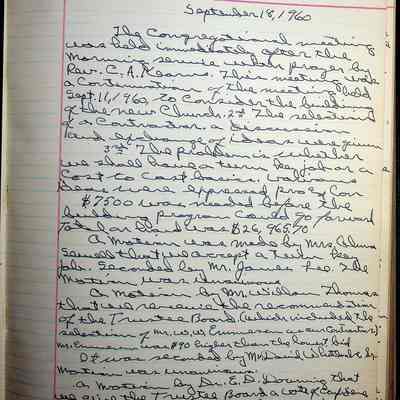 September 18, 1960
The Congregational meeting
was held immediately after the
morning service with prayer by
Rev. C. A. Kearns. This meeting was
a continuation of the meeting held
Sept. 11, 1960, to consider the building
of the new Church. 2nd The selection
of a Contractor. a discussion
and exchange of ideas were given
3rd The problem is whether
we shall have a turn key job or a
Cost to Cost basis. Various
ideas were expressed pro & Con
$7500 was needed before the
building program could go forward
Total on hand was $26,965.70
A Motion was made by Mrs.
Sewell that we accept a turn key
job. Seconded by Mr. James Lee. The
Motion was unanimous.
A Motion by Mr. William Thomas
that we receive the recommendation
of the Trustee Board (which included the
selection of Mr. W. W. as our Contractor)
Mr. was $90 higher than the lowest bid
It was seconded by Mr. David
Motion was unanimous.
a Motion by Dr. E. D. Downing that
we give the Trustee Board a vote of